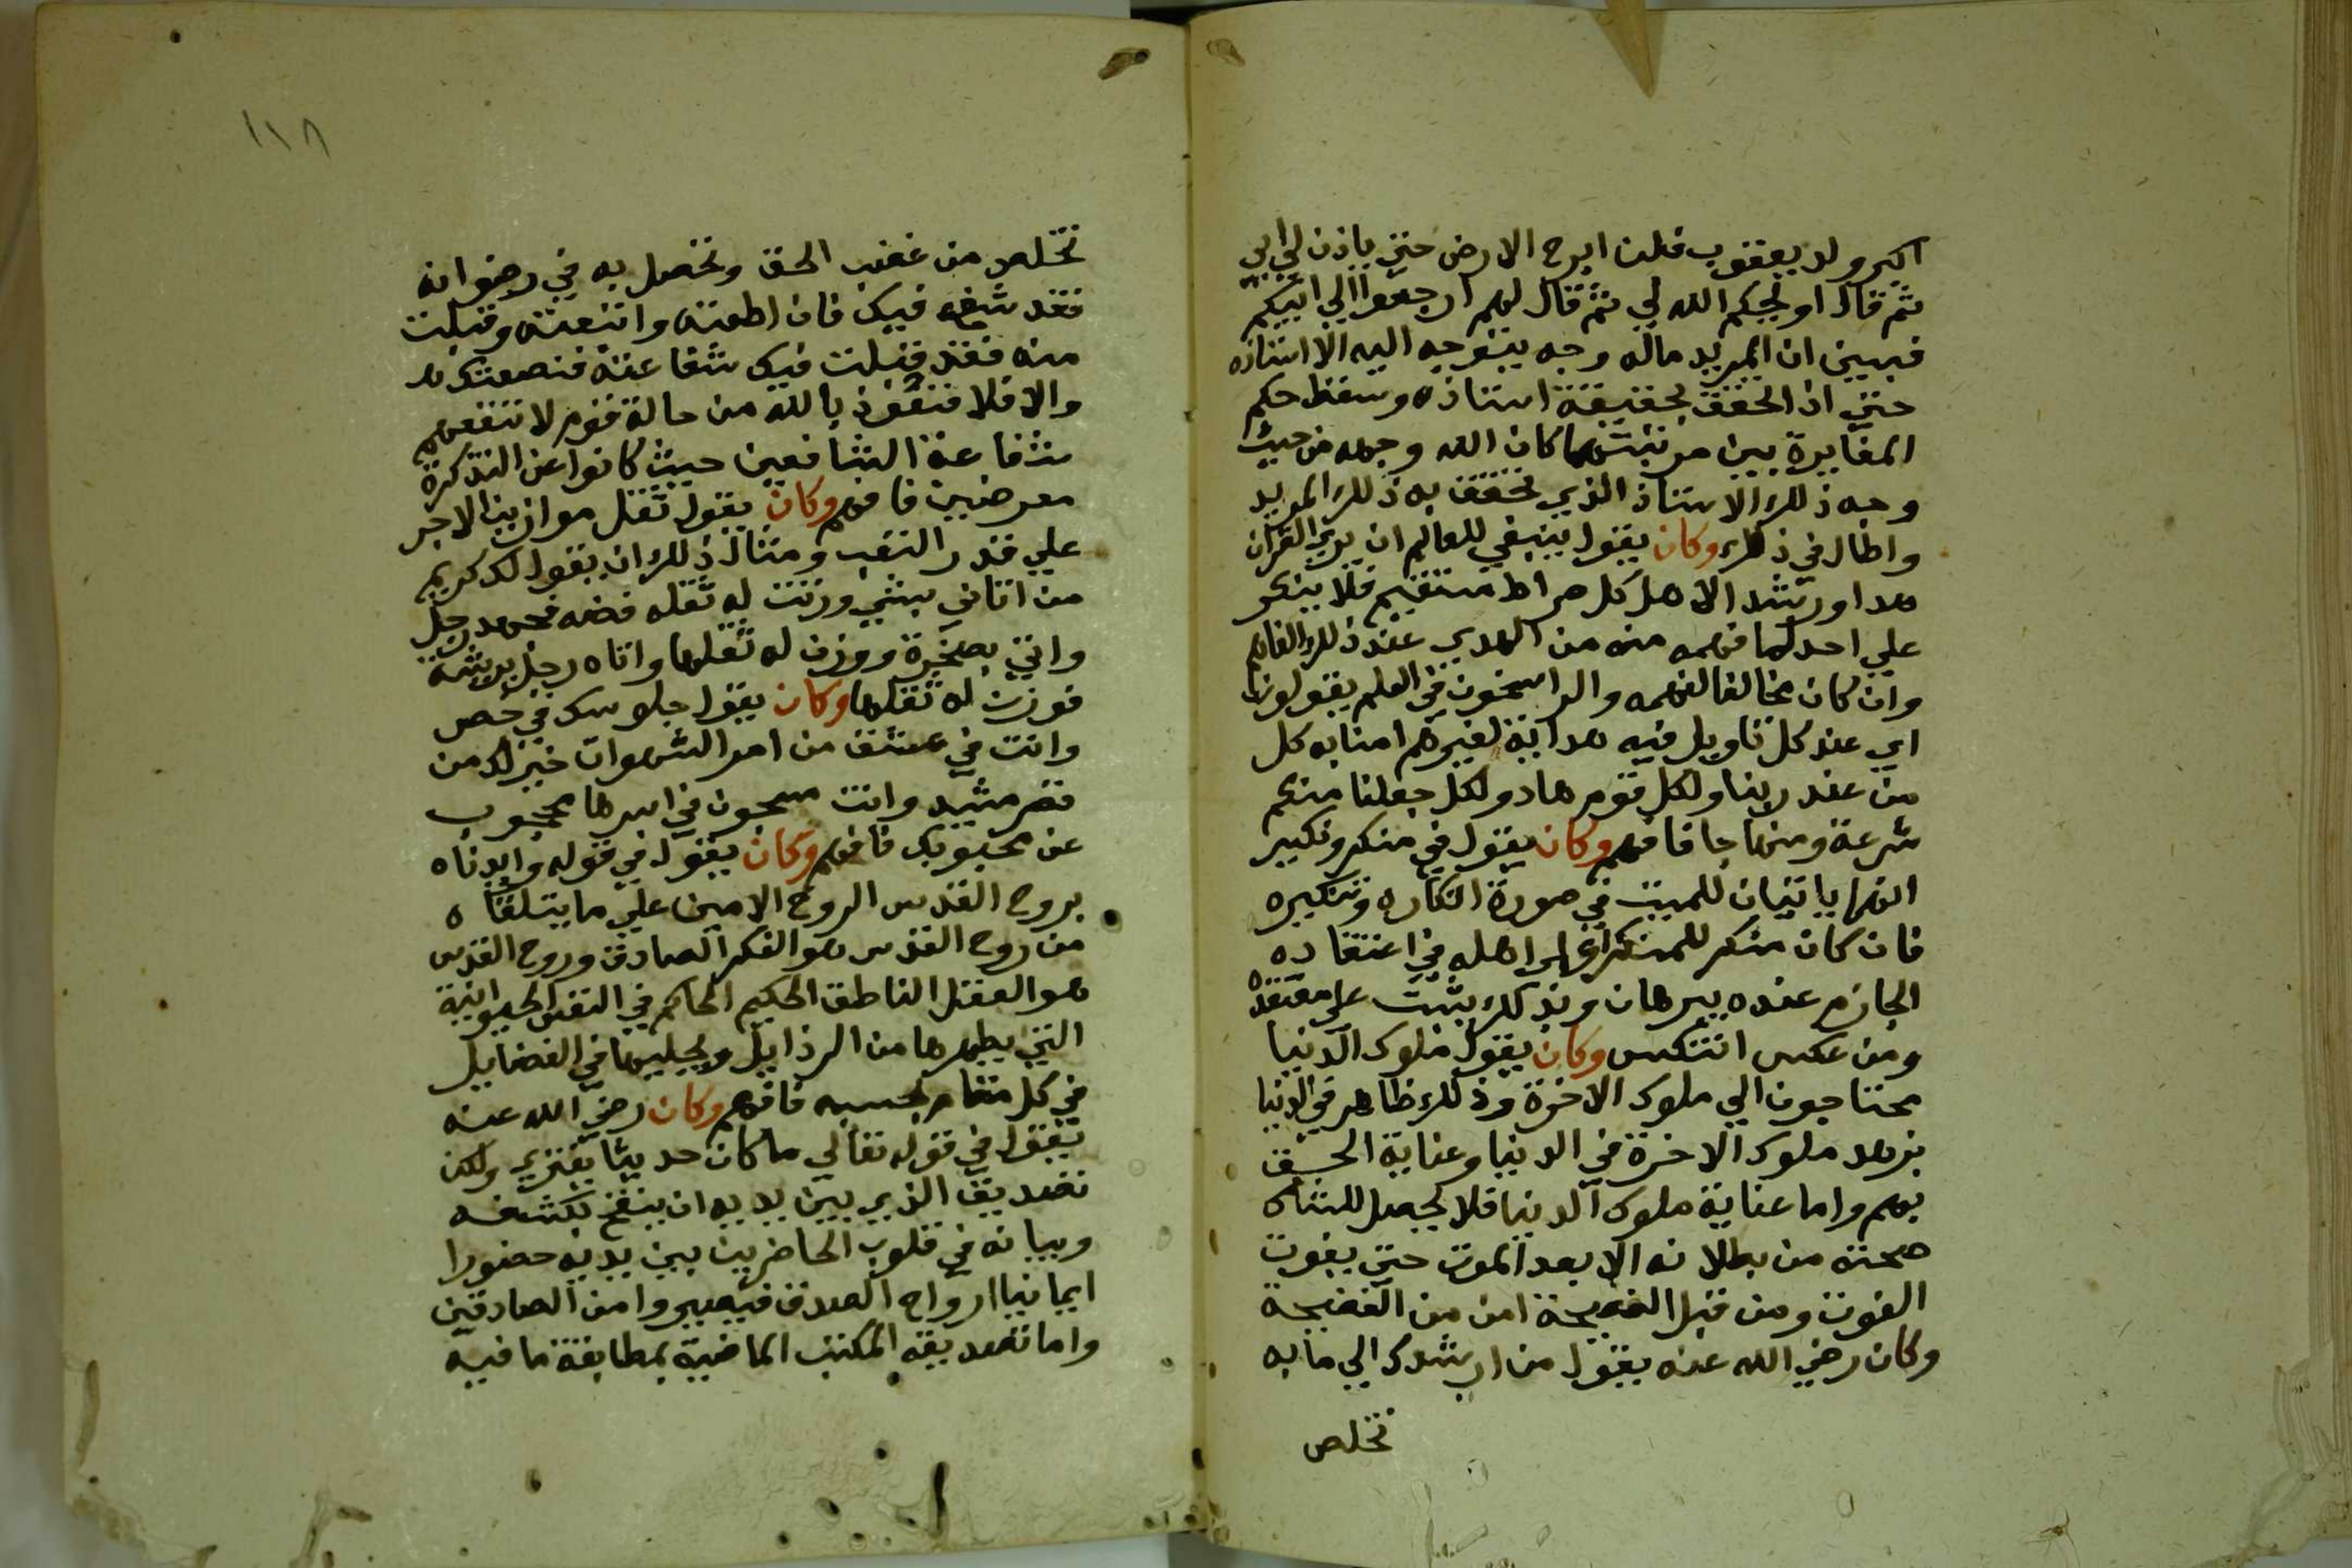 اكبر ولد يعقوب فلن ابرح الارض حتي ياذن لي ابي
ثم قال او يحكم الله لي ثم قال لهم ارجعوا الي ابيكم
فبين ان المريد ماله وجه يتوجه اليه الا استاذه
حتي اذا تحقق بحقيقة استاذه وسقط حكم
المغايرة بين مرتبتهما كان الله وجهه من حيث
وجه ذلك الاستاذ الذي تحقق به ذلك المريد
واطال في ذلك وكان يقول ينبغي للعالم ان يري القران
هدا ورشد الاهل كل صراط مستقيم فلا ينكر
علي احد لما فهمه منه من الهدي عند ذلك الفاهم
وان كان مخالفا لفهمه والراسخون في العلم يقولون
اي عند كل تاويل فيه هداية لغيرهم امنا به كل
من عند ربنا ولكل قوم هاد ولكل جعلنا منكم
شرعة ومنهاجا فافهم وكان يقول في منكر ونكير
انهما ياتيان للميت في صورة انكاره وتنكيره
فان كان منكر للمنكر اي اهله في اعتقاده
الجازم عنده ببرهان وبذلك يثبت علي معتقده
ومن عكس انتكس وكان يقول ملوك الدنيا
محتاجون الي ملوك الاخرة وذلك ظاهر في الدنيا
بزهد ملوك الاخرة في الدنيا وعناية الحق
بهم واما عناية ملوك الدنيا فلا يحصل للشاك
صحته من بطلانه الا بعد الموت حتي يفوت
الفوت ومن قبل النصيحة امن من الفضيحة
وكان رضي الله عنه يقول من ارشدك الي ما به
تخلص
١١٨
تخلص من غضب الحق وتحصل به في رضوانه
فقد شفع فيك فان اطعته واتبعته وقبلت
منه فقد قبلت فيك شفاعته فنفعتك
والا فلا فنعوذ بالله من حالة قوم لا تنفعهم
شفاعة الشافعين حيث كانوا عن التذكرة
معرضين فافهم وكان يقول ثقل موازين الاجر
علي قدر التعب ومثال ذلك ان يقول لك كريم
من اتاني بشي وزنت له ثقله فضه فجهد رجل
واتي بصخرة ووزن له ثقلها واتاه رجل بريشة
فوزنت له ثقلها وكان يقول جلوسك في خص
وانت في عتق من امر الشهوات خير لك من
قصر مشيد وانت مسجون في اسرها محجوب
عن محبوبك فافهم وكان يقول في قوله وايدناه
بروح القدس الروح الامين علي ما يتلقاه
من روح القدس هو الفكر الصادق وروح القدس
هو العقل الناطق الحكيم الحاكم في النفس الحيوانية
التي يطهرها من الرذايل ويحليها في الفضايل
في كل مقام بحسبه فافهم وكان رضي الله عنه
يقول في قوله تعالي ما كان حديثا يفتري ولكن
تصديق الذي بين يديه ان ينفخ بكشفه
وبيانه في قلوب الحاضرين بين يديه حضورا
ايمانيا ارواح الصدق فيصيروا من الصادقين
واما تصديقه الكتب الماضية بمطابقة ما فيه